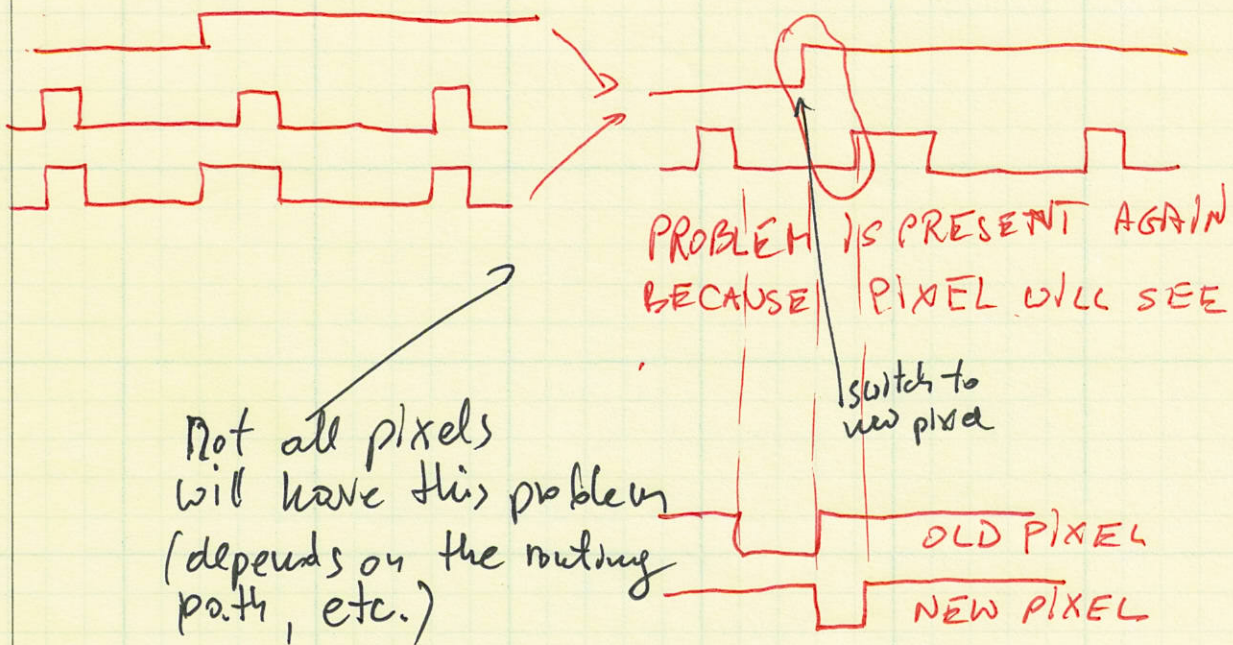 PROBLEM IS PRESENT AGAIN
BECAUSE PIXEL WILL SEE
switch to
new pixel
Not all pixels
will have this problem
(depends on the routing
path, etc.)
OLD PIXEL
NEW PIXEL